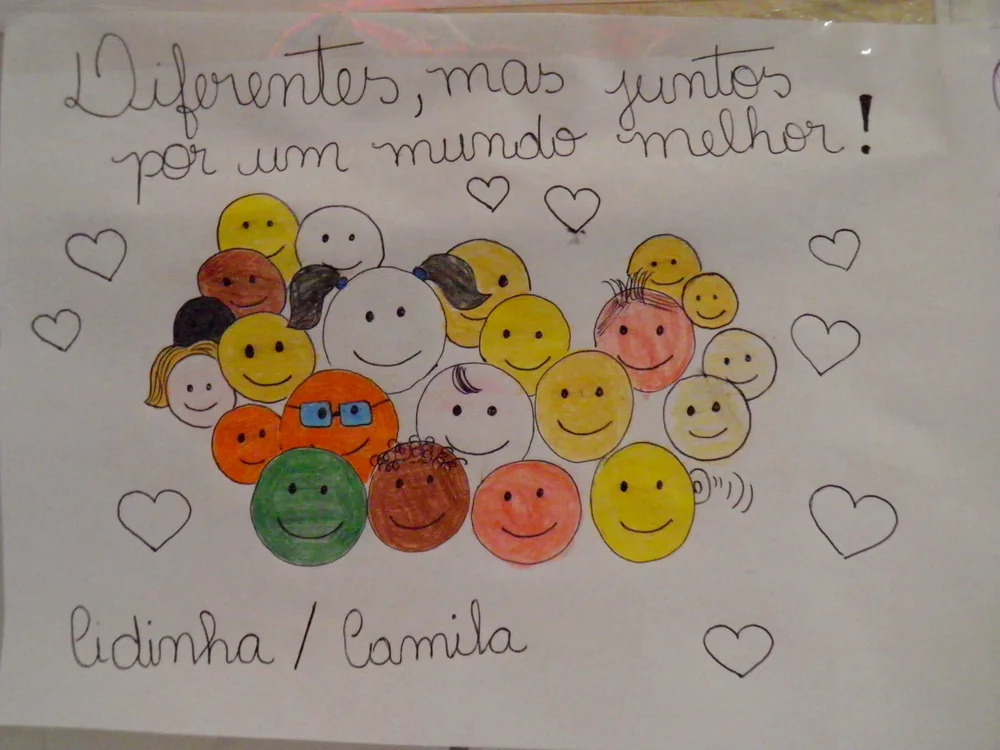 Diferentes, mas juntos
por um mundo melhor!
Cidinha / Camila